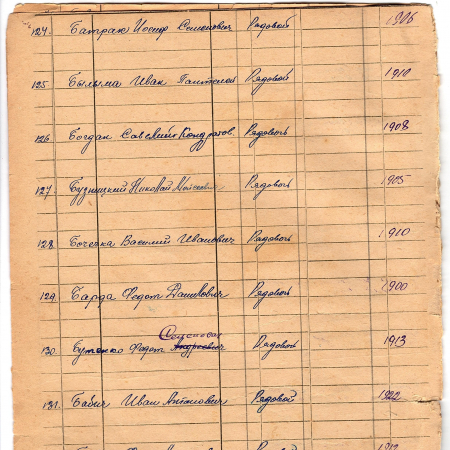 124. Батрак Иосиф Семенович Рядовой 1906
125 Былыма Иван Пантелей Рядовой 1910
126 Богдан Савелий Кондратов. Рядовой 1908
127 Будницкий Николай Моисеевич Рядовой 1905
128 Василий Иванович Рядовой 1910
129. Барда Федот Данилович Рядовой 1900
130. Бутенко Федот Андреевич Рядовой 1913
131. Бабич Иван Антонович Рядовой 1922